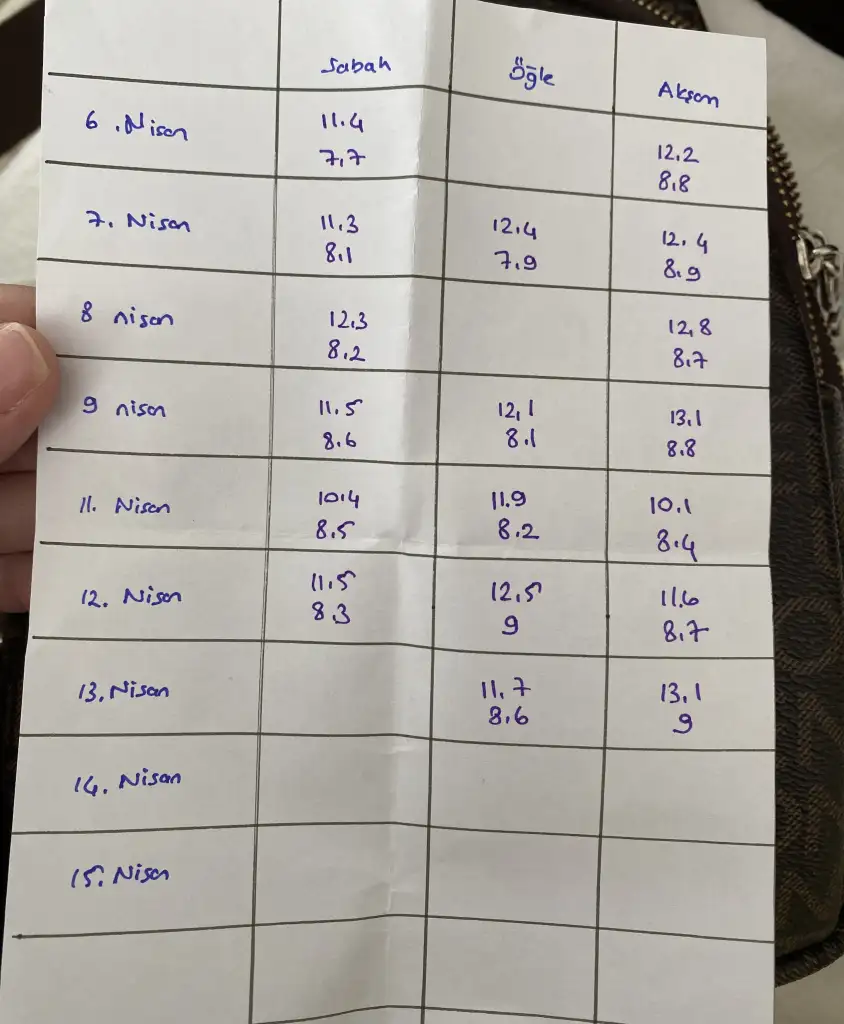 Sabah Öğle Akşam
6. Nisan 11.4 12.2
7,7 8.8
7. Nisan 11.3 12.4 12.4
8.1 7.9 8.9
8 nisan 12.3 12,8
8.2 8.7
9 nisan 11.5 12,1 13.1
8.6 8.1 8.8
11. Nisan 10.4 11.9 10.1
8.5 8.2 8.4
12. Nisan 11.5 12.5 11.6
8.3 9 8.7
13. Nisan 11.7 13.1
8.6 9
14. Nisan
15. Nisan